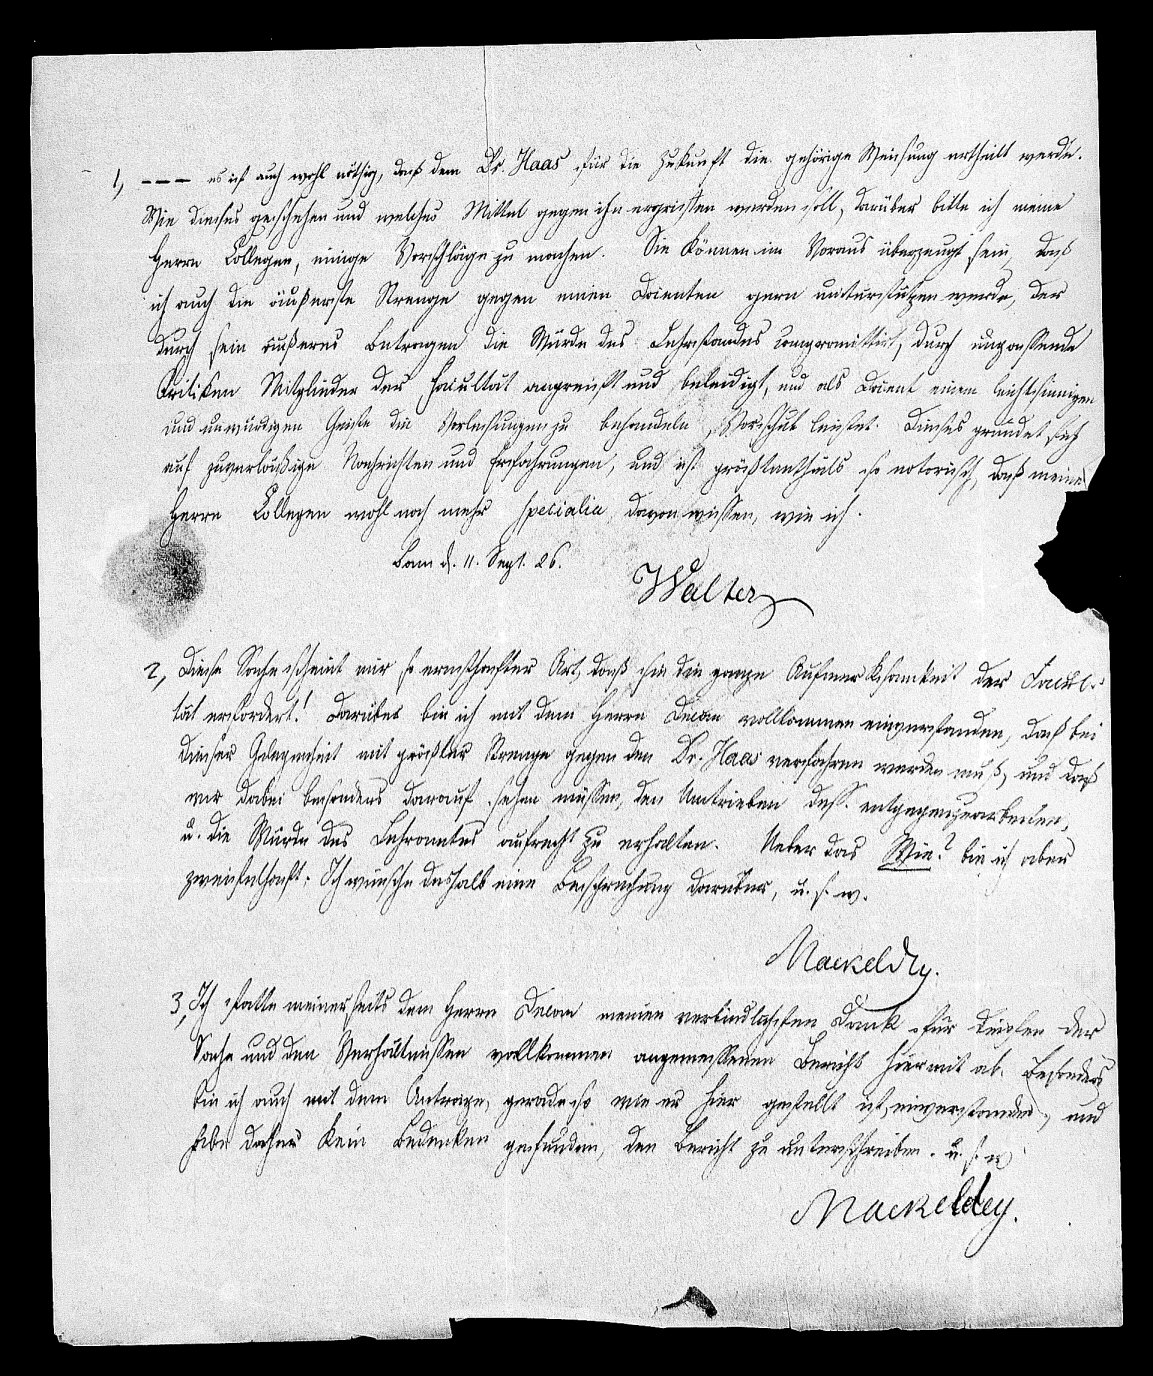 1, --- es ist auch wohl nöthig, daß dem Dr. Haas für die Zukunft die gehörige Weisung ertheilt werde.
Wie dieses geschehen und welches Mittel gegen ihn ergriffen werden soll, darüber bitte ich meine
Herrn Collegen, einige Vorschläge zu machen. Sie können im Voraus überzeugt sein, daß
ich auch die äußerste Strenge gegen einen Docenten gern unterstützen werde, der
durch sein äußeres Betragen die Würde des Lehrstandes compromittirt, durch unpassende
Kritiken Mitglieder der Facultät angreift und beleidigt, und als Docent einem leichtsinnigen
und unwürdigen Geiste die Vorlesungen zu behandeln, Vorschub leistet. Dieses gründet sich
auf zuverläßige Nachrichten und Erfahrungen, und ist größtentheils so notorisch, daß meine
Herrn Collegen wohl noch mehr specialia davon wissen, wie ich.
Bonn d. 11. Sept. 26.
Walter
2, Diese Sache scheint mir so ernsthafter Art, daß sie die ganze Aufmerksamkeit der Facul-
tät erfordert! Darüber bin ich mit dem Herrn Decan vollkommen einverstanden, daß bei
dieser Gelegenheit mit größter Strenge gegen den Dr. Haas verfahren werden muß, und daß
wir dabei besonders darauf sehen müssen, den Umtrieben dess. entgegenzuarbeiten,
u. die Würde des Lehramtes aufrecht zu erhalten. Ueber das Wie? bin ich aber
zweifelhaft. Ich wünsche deshalb eine Besprechung darüber, u. s. w.
Mackeldey.
3, Ich statte meinerseits dem Herrn Decan meinen verbindlichsten Dank für diesen der
Sache und den Verhältnissen vollkommen angemessenen Bericht hiermit ab. Besonders
bin ich auch mit dem Antrage, gerade so wie er hier gestellt ist, einverstanden, und
habe daher kein Bedenken gefunden, den Bericht zu unterschreiben. u. s. w.
Mackeldey.